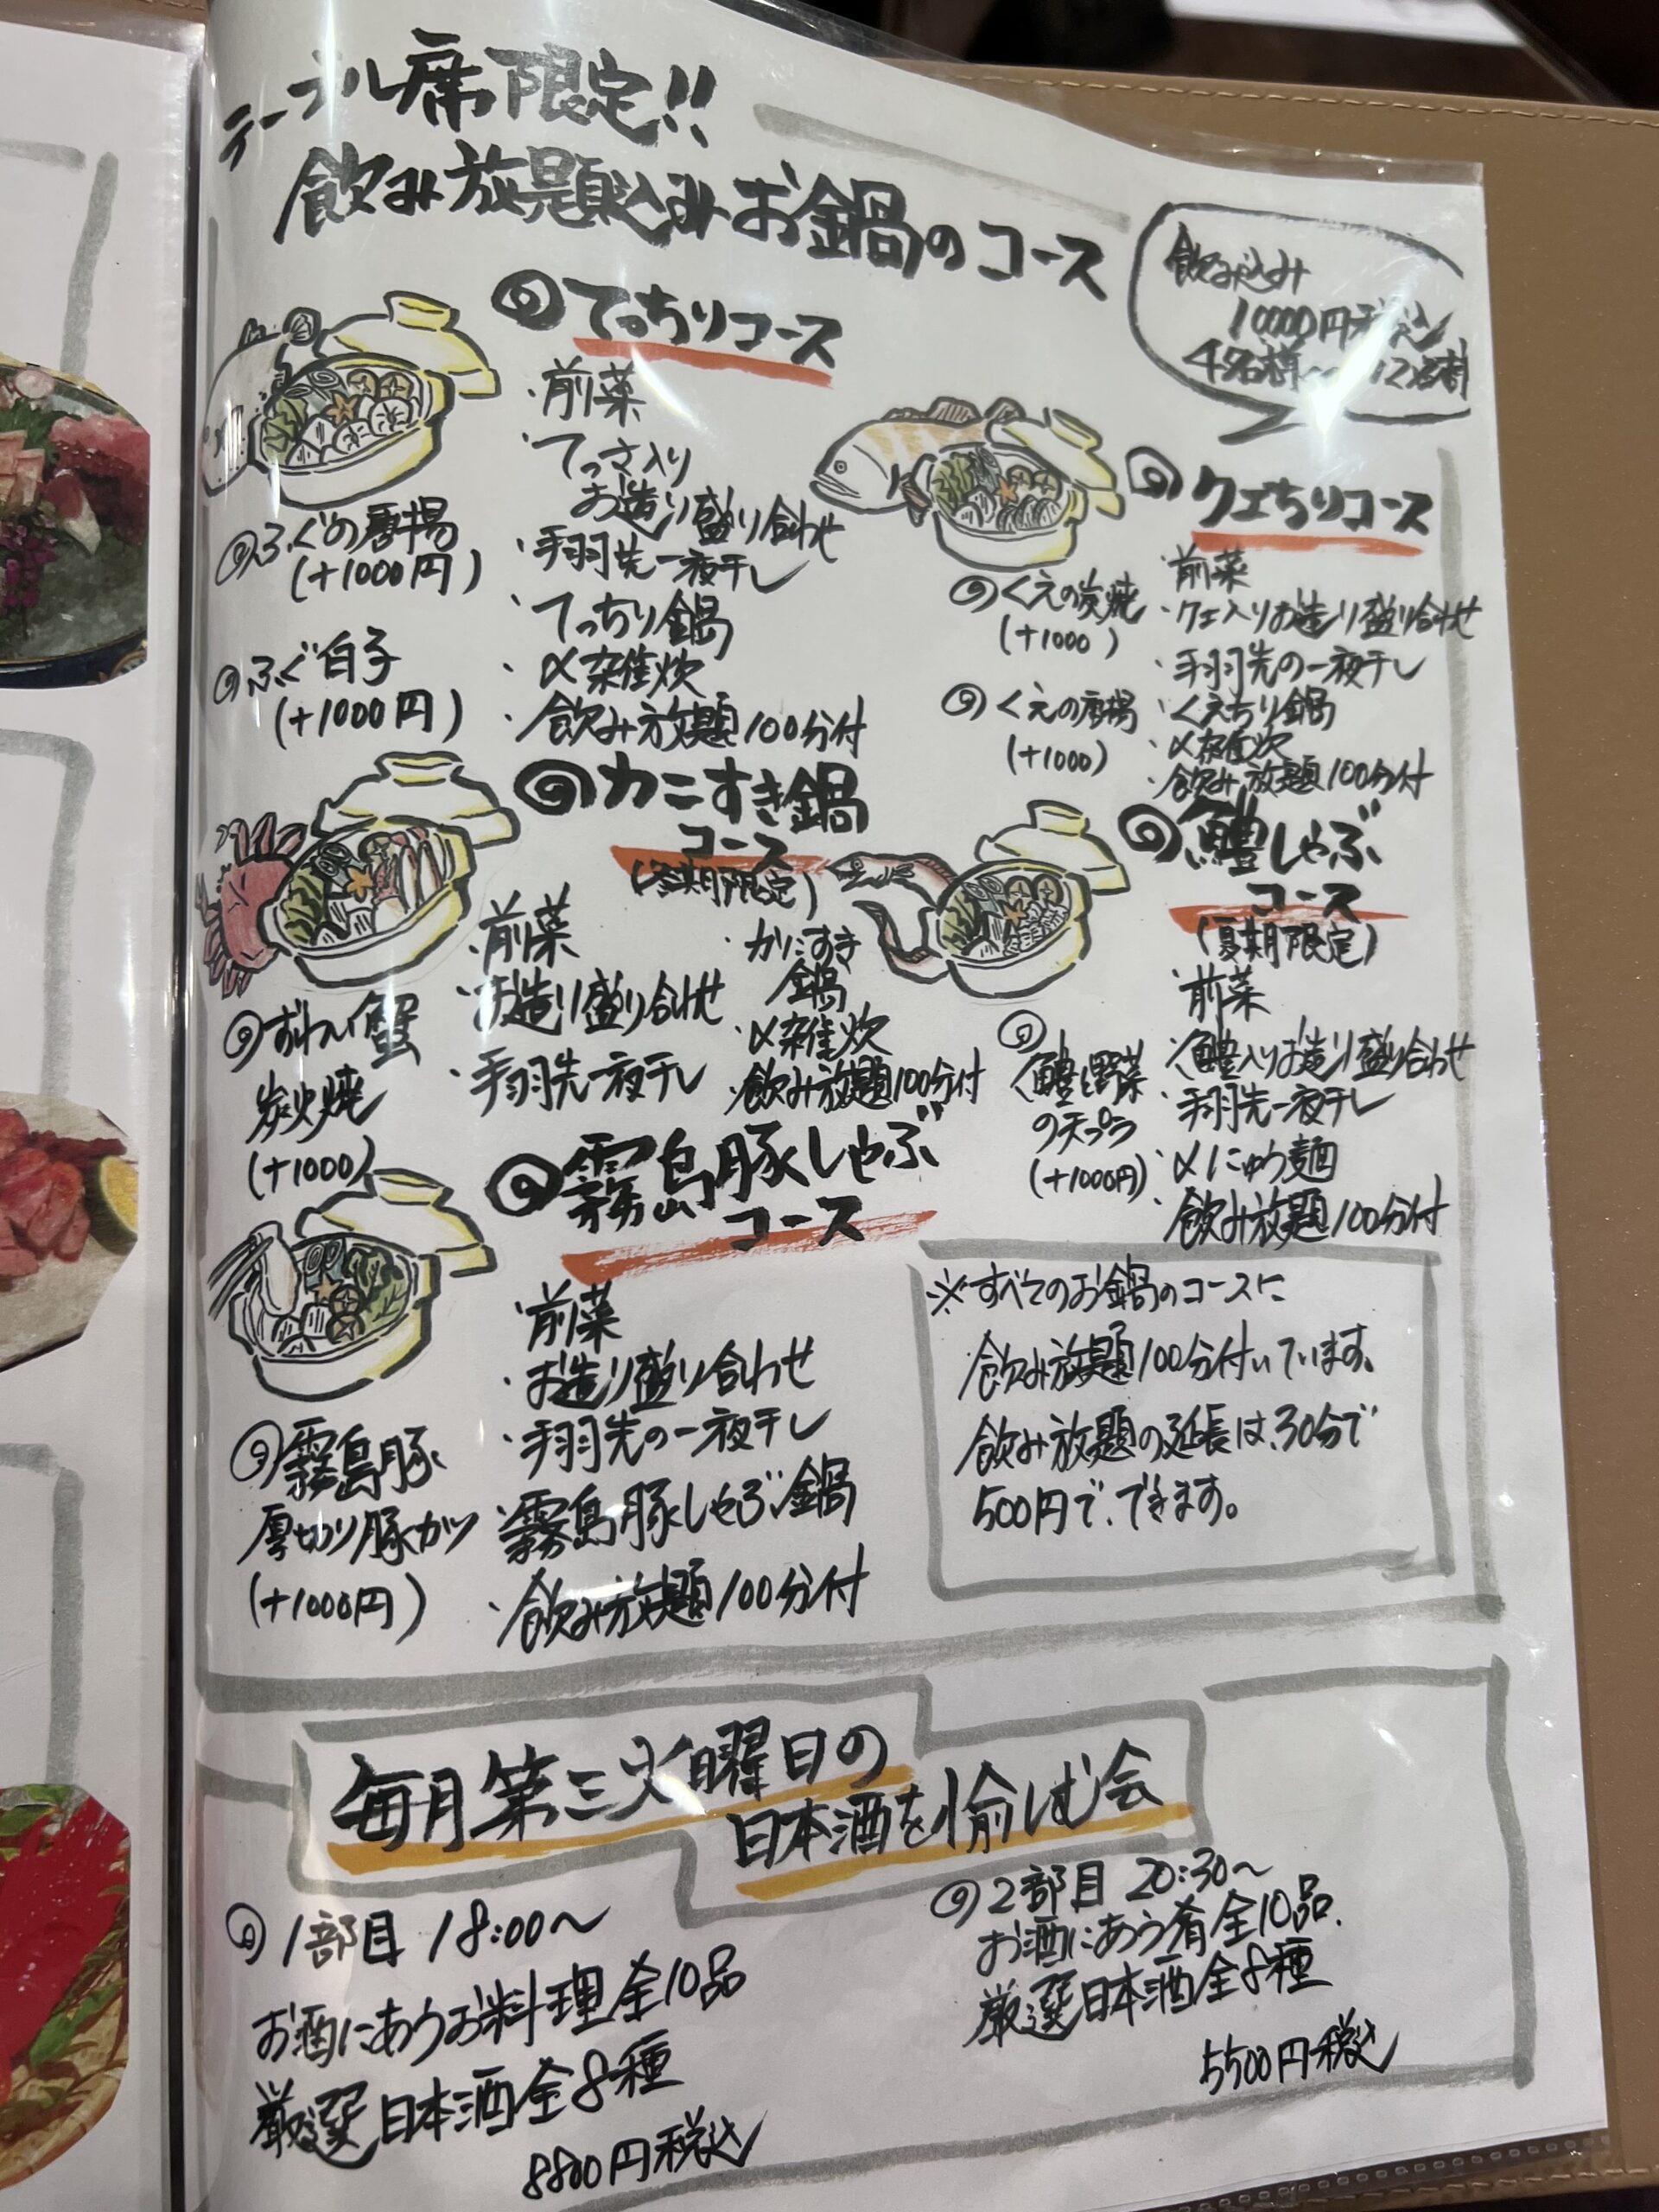 テーブル席限定!!
飲み放題込みお鍋のコース
飲み込み
10000円税込
4名様
てっちりコース
・前菜
・てっさ入り
お造り盛り合わせ
・手羽先一夜干し
・てっちり鍋
・〆雑炊
・飲み放題100分付
ふぐの唐揚
(+1000円)
ふぐ白子
(+1000円)
クエちりコース
・前菜
・クエ入りお造り盛り合わせ
・手羽先の一夜干し
・くえちり鍋
・〆雑炊
・飲み放題100分付
くえの炭焼
(+1000)
くえの唐揚
(+1000)
カニすき鍋
コース
(冬期限定)
・前菜
・お造り盛り合わせ
・手羽先一夜干し
・かにすき
鍋
・〆雑炊
・飲み放題100分付
ずわい蟹
炭火焼
(+1000)
鱧しゃぶ
コース
(夏期限定)
・前菜
・鱧入りお造り盛り合わせ
・手羽先一夜干し
・〆にゅう麺
・飲み放題100分付
鱧と野菜
の天プラ
(+1000円)
霧島豚しゃぶ
コース
・前菜
・お造り盛り合わせ
・手羽先の一夜干し
・霧島豚しゃぶ鍋
・飲み放題100分付
霧島豚
厚切り豚カツ
(+1000円)
※すべてのお鍋のコースに
飲み放題100分付いています。
飲み放題の延長は、30分で
500円で、できます。
毎月第三火曜日の
日本酒を愉しむ会
1部目 18:00～
お酒にあうお料理全10品
厳選日本酒全8種
8800円税込
2部目 20:30～
お酒にあう肴全10品.
厳選日本酒全8種
5500円税込